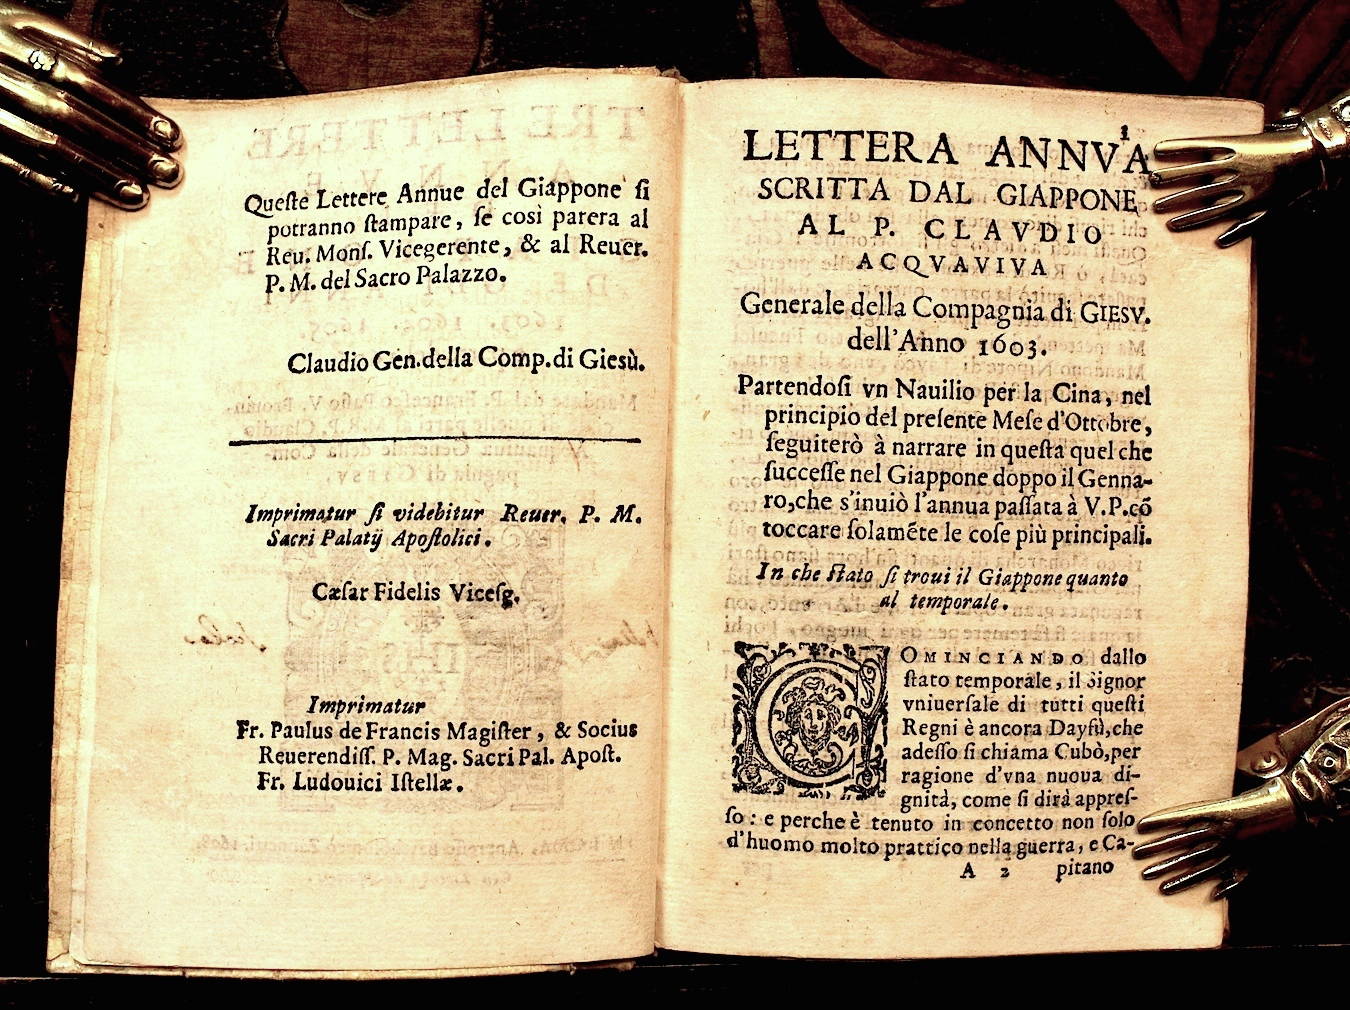 Queſte Lettere Annue del Giappone ſi
potranno ſtampare, ſe così parera al
Reu. Monſ. Vicegerente, & al Reuer.
P. M. del Sacro Palazzo.
Claudio Gen. della Comp. di Giesù.
Imprimatur ſi videbitur Reuer. P. M.
Sacri Palatij Apoſtolici.
Cæſar Fidelis Viceſg.
Imprimatur
Fr. Paulus de Francis Magiſter, & Socius
Reuerendiſſ. P. Mag. Sacri Pal. Apoſt.
Fr. Ludouici Iſtellæ.
1
LETTERA ANNVA
SCRITTA DAL GIAPPONE
AL P. CLAVDIO
ACQVAVIVA
Generale della Compagnia di GIESV.
dell'Anno 1603.
Partendoſi vn Nauilio per la Cina, nel
principio del preſente Meſe d'Ottobre,
ſeguiterò à narrare in queſta quel che
ſucceſſe nel Giappone doppo il Genna-
ro, che s'inuiò l'annua paſſata à V.P. cõ
toccare ſolamẽte le coſe più principali.
In che ſtato ſi troui il Giappone quanto
al temporale.
COMINCIANDO dallo
ſtato temporale, il Signor
vniuerſale di tutti queſti
Regni è ancora Dayfù, che
adeſſo ſi chiama Cubò, per
ragione d'vna nuoua di-
gnità, come ſi dirà appreſ-
ſo: e perche è tenuto in concetto non ſolo
d'huomo molto prattico nella guerra, e Ca-
A 2 pitano